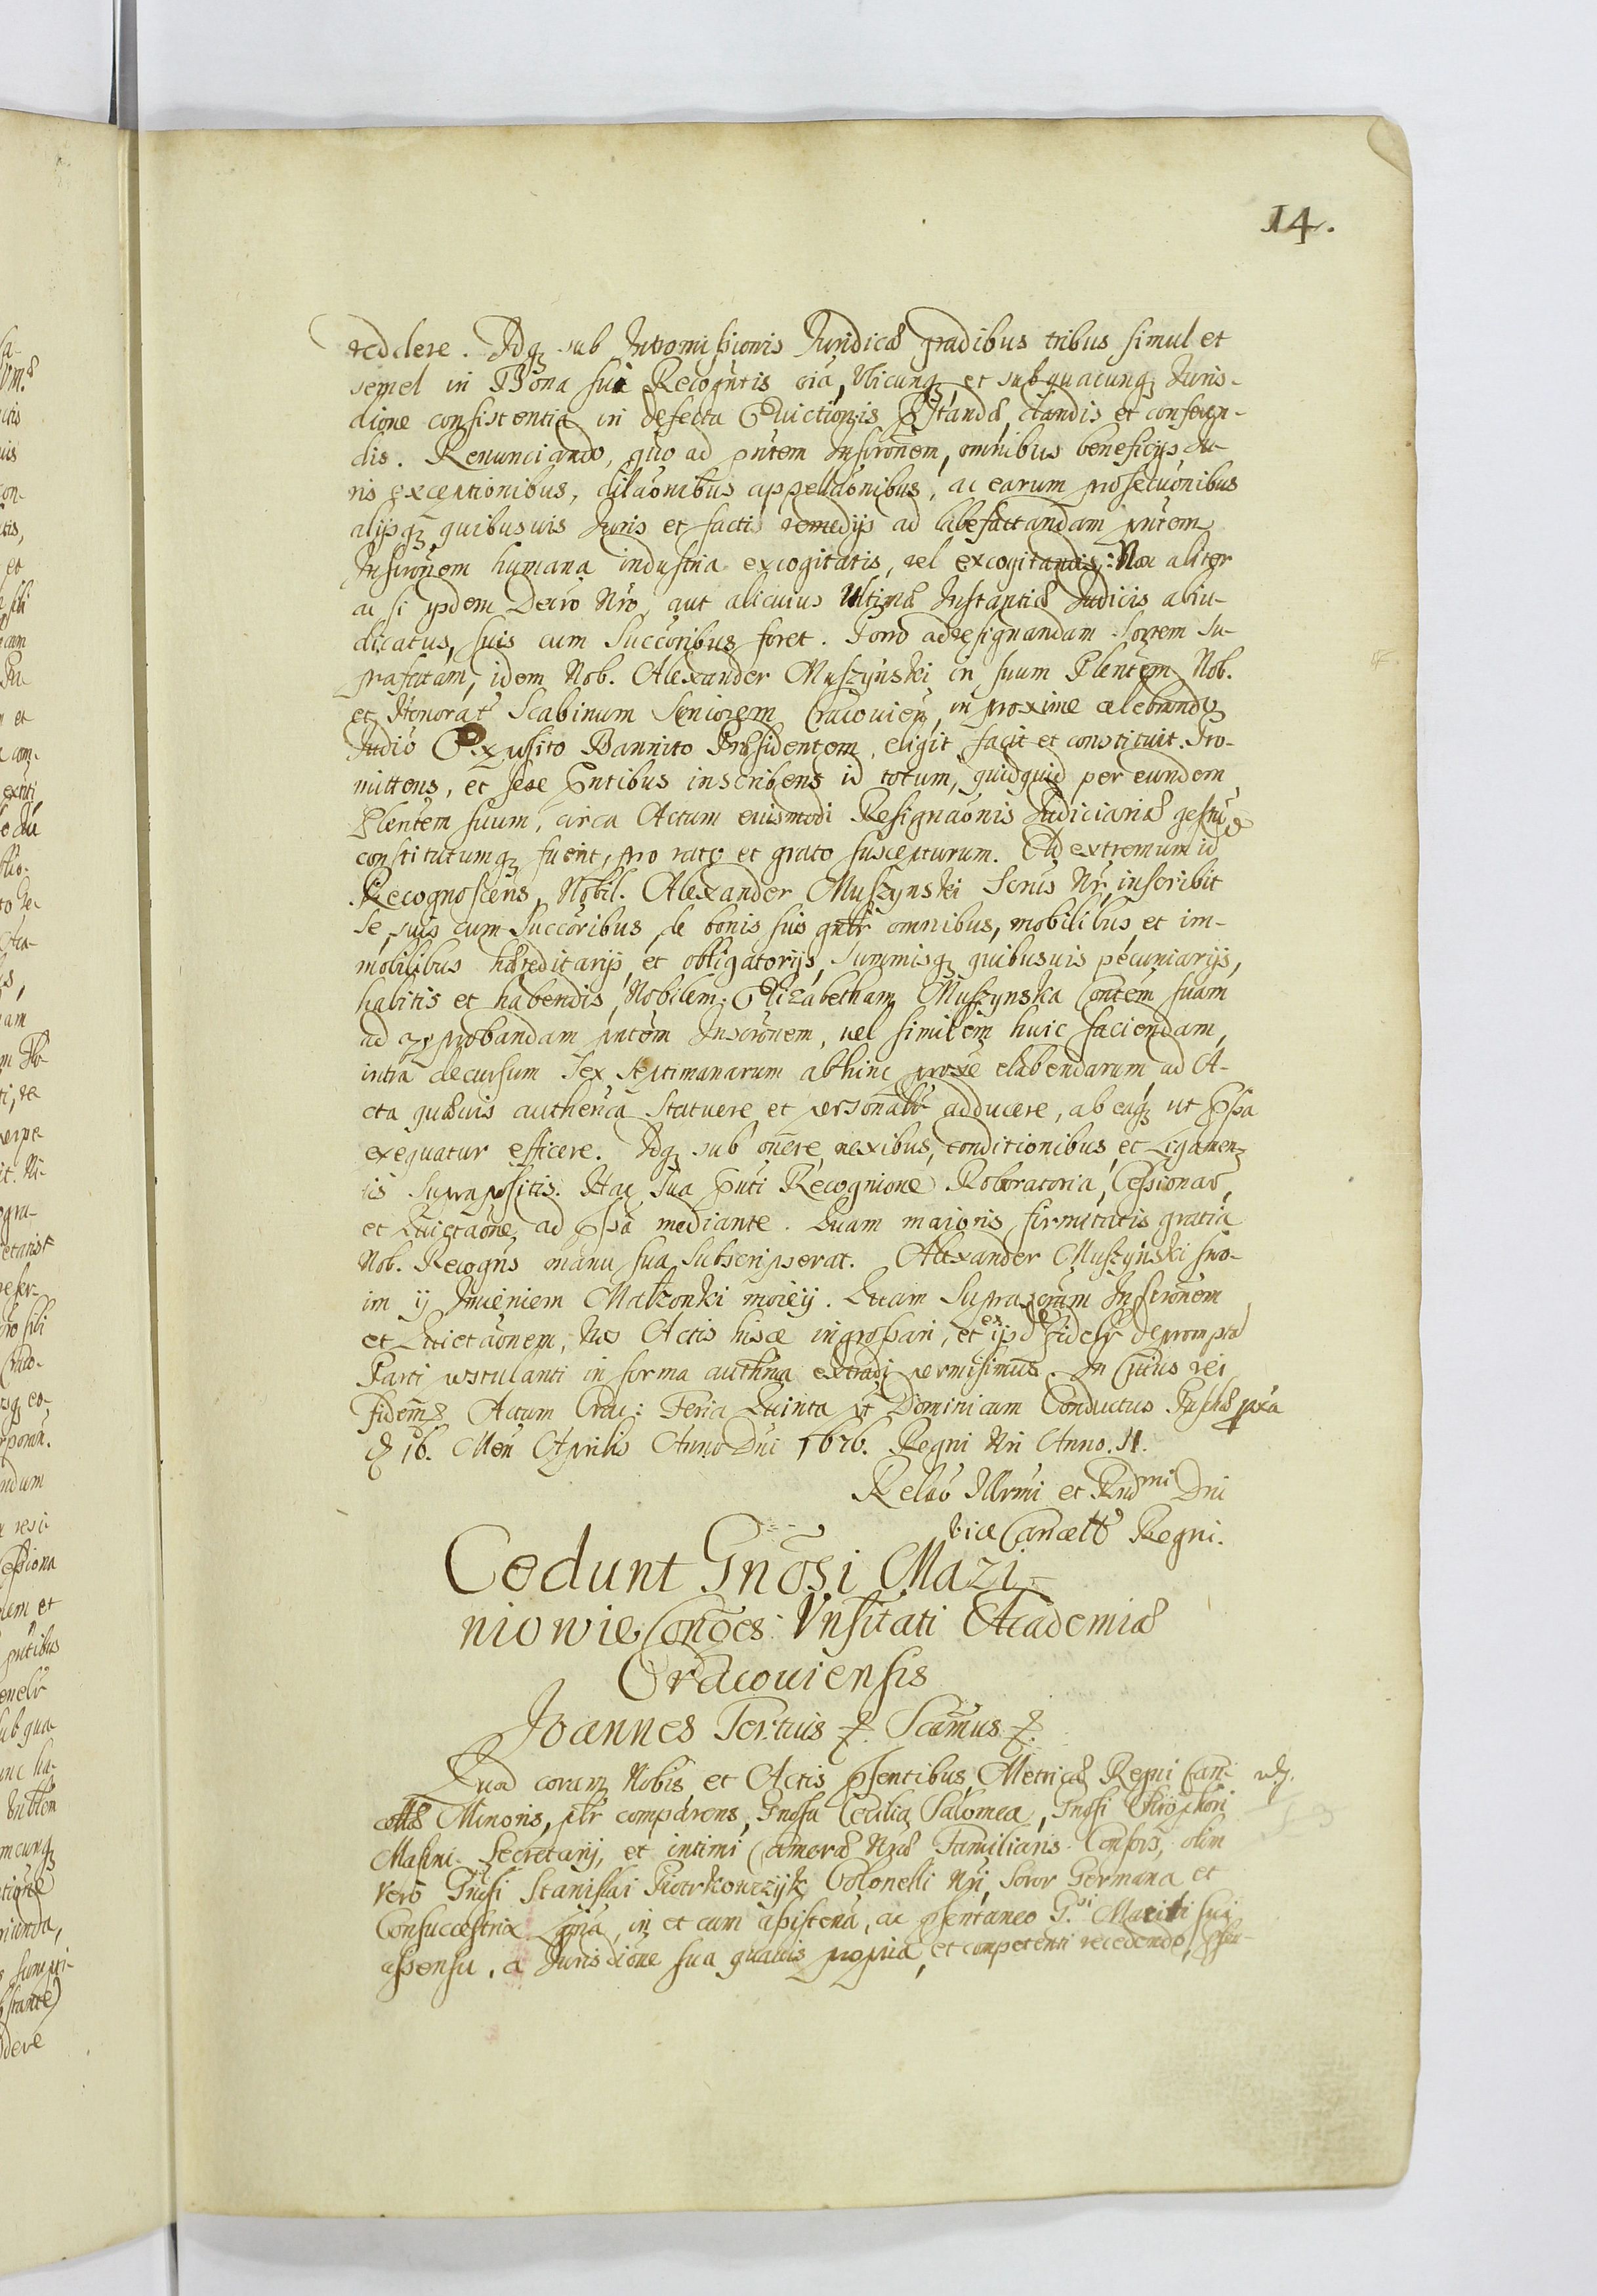 14.
reddere. Idq₃ sub Intromissionis Juridicæ gradibus tribus simul et
semel in Bona suæ Recogñtis oiã, Vbicunq₃ et subquacunq₃ Juris-
dione consistentia in defectu Euictionis pstandæ, dandis et consequen-
dis. Renunciando, quo ad pntem Inscrõnem, omnibus beneficijs Ju-
ris exceptionibus, dilaõnibus appellaõnibus, ac earum prosecuõnibus
alijsq₃ quibusuis Juris et facti remedijs ad labefactandam pntem
Inscrõnem humana industria excogitatis, vel excogitandis: Non aliter
ac si ijsdem Decro Nrõ, aut alicuius Vltimæ Instantiæ Judicis abiu-
dicatus, suis cum Succoribus foret. Porrò ad resignandam Sortem su-
præfatam, idem Nob. Alexander Muszynski in suum Plentem Nob.
et Honorat Scabinum Seniorem Cracouien, in proxime celebrando
Judiõ Exposito Bannito Præsidentem eligit facit et constituit. Pro-
mittens, et sese pntibus inscribens id totum, quidquid per eundem
Plentem suum, circa Actum eiusmodi Resignaõnis Judiciariæ gestũ
constitutumq₃ fuerit, pro rato et grato suscepturum. Ad extremum id
Recognoscens, Nobil. Alexander Muszynski Serus Nr, inscribit
se, suis cum Succoribus, de bonis suis gnlr omnibus, mobilibus et im-
mobilibus hæreditarijs, et obligatorijs, Summisq₃ quibusuis pecuniarijs,
habitis et habendis, Nobilem Elizabetham Muszynska Contem suam
ad approbandam pntem Inscrõnem, vel similem huic faciendam,
intra decursum sex septimanarum abhinc proxe elabendarum, ad A-
cta quæuis authenca statuere et personalr adducere, ab eaq₃ ut pssa
exequatur efficere. Idq₃ sub onere, nexibus, conditionibus, et Ligamen-
tis Suprapositis. Hac sua pnti Recognione Roboratoria, Cessionaõ,
et Quietaõne ad pssa mediante. Quam maioris firmitatis gratia
Nob. Recogñs manu sua subscripserat. Alexander Muszynski swo-
im ij Imieniem Malzonki moieij. Quam Suprascriptam Inscrõnem
et Quietaõnem, Nos Actis hisce ingrossari, et ex ijsd fidelr depromptæ
Parti postulanti in forma authna extradi permisimus. In Cuius rei
fidem & Actum Crac: Feria Quinta pt Dominicam Conductus Paschæ pxa
d. 16. Men Aprilis Anno Dni 1676. Regni Nri Anno. II.
Relaõ Illrmi et Rndmi Dni
Vice Cancell Regni.
Cedunt Gnõsi Mazi-
niowie Conges Vnsitati Academiæ
Cracouiensis
Joannes Tertius &. Scamus &.
Quod coram Nobis et Actis psentibus Metricæ Regni Can-
cellæ Minoris, plr comparens, Gnosa Cecilia Salomea, Gnosi Chrophori
Masini Secretarij, et intimi Cameræ Nræ Familiaris Consors, olim
Vero Gnosi Stanislai Piotrkowczijk Colonelli Nri, Soror Germana et
Consuccestrix Lgma, in et cum assistena, ac psentaneo G.si Mariti sui
assensu, à Jurisdione sua quauis propria, et competenti recedendo, psen-